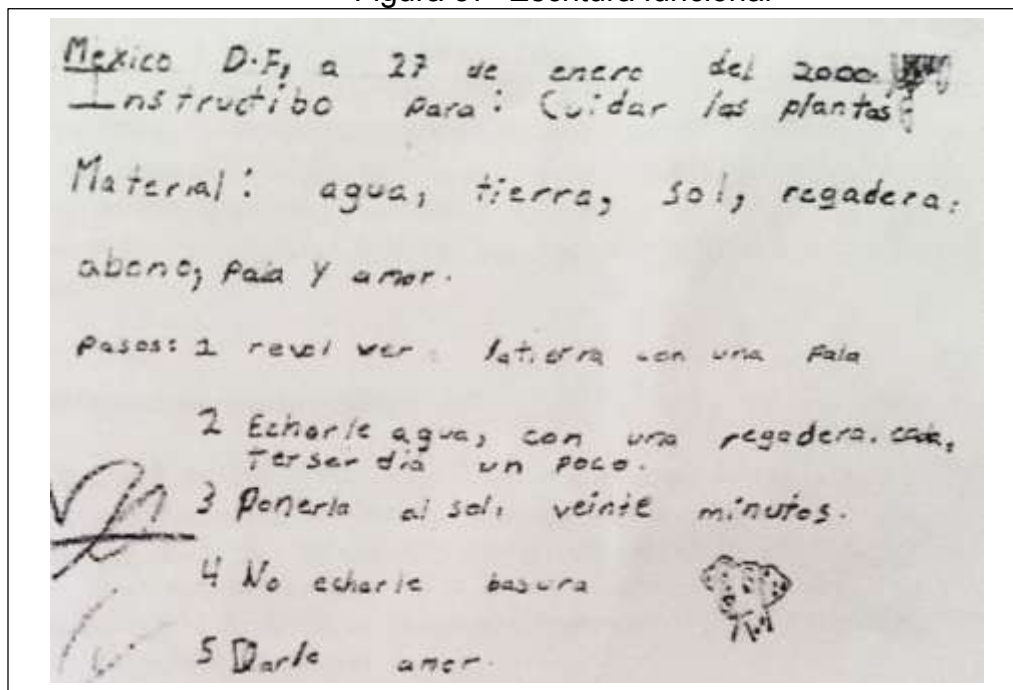 Mexico D.F, a 27 de enero del 2000.
Instructibo para: Cuidar las plantas
Material: agua, tierra, sol, regadera,
abono, pala y amor.
Pasos: 1 revol ver latierra con una Pala
2 Echarle agua, con una regadera. cada,
Terser dia un poco.
3 Ponerla al sol, veinte minutos.
4 No echarle basura
5 Darle amor.